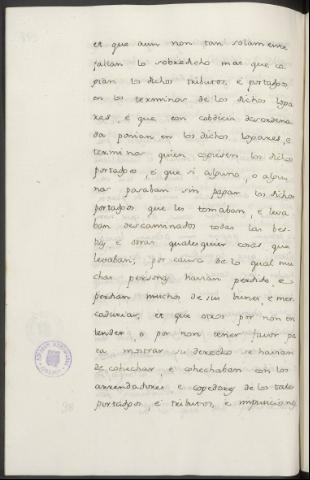 et que aun non tan solamente
faltan lo sobredicho mas que co
gian los dichos tributos, é portados
en los terminos de los dichos loga
res, é que con cobdicia desordena
da ponian en los dichos logares, é
terminos quien cogiesen los dichos
portados, é que si alguno, o algu
nos pasaban sin pagar los dichos
portados que les tomaban, e leva
ban descaminados todas las bes
tias, é otras qualesquier cosas que
levaban; por causa de lo qual mu
chas personas havian perdido, e
perdian muchos de sus bienes, e mer
cadurias; et que otros por non en
tender, o por non tener favor pa
ra mostrar su derecho se havian
de cohechar, e cohechaban con los
arrendadores e cogedores de los tales
portados, é tributos, e imposiciones